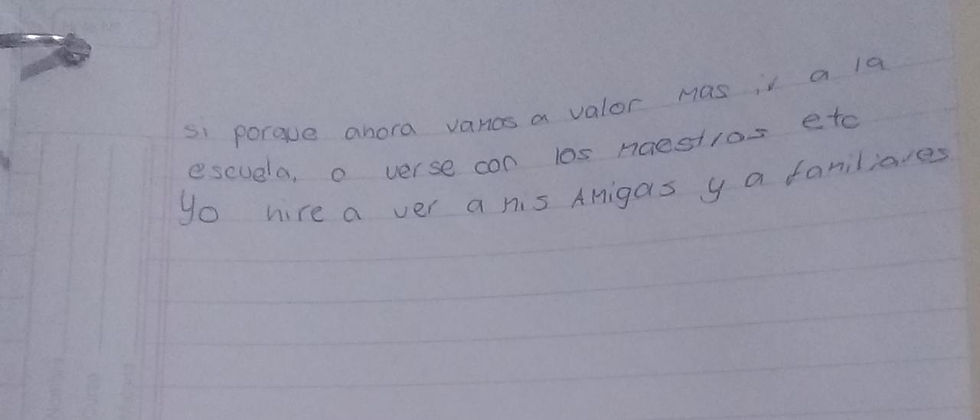 si porque ahora vamos a valor mas ir a la
escuela, o verse con los maestros etc
Yo hire a ver a mis Amigas y a familiares